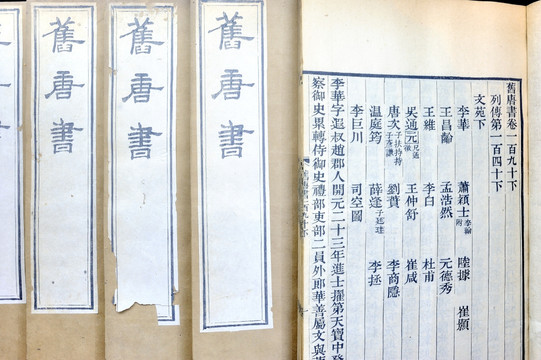 舊唐書卷一百九十下
列傳第一百四十下
文苑下
李華 蕭穎士 李翰附 陸據 崔顥
王昌齡 孟浩然 元德秀
王維 李白 杜甫
吳通元 兄通微 王仲舒 崔咸
唐次 子扶持 持子彥謙 劉蕡 李商隱
温庭筠 薛逢 子廷珪 李拯
李巨川 司空圖
李華字遐叔趙郡人開元二十三年進士擢第天寶中
察御史累轉侍御史禮部吏部二員外郎華善屬文與
舊唐書
舊唐書
舊唐書